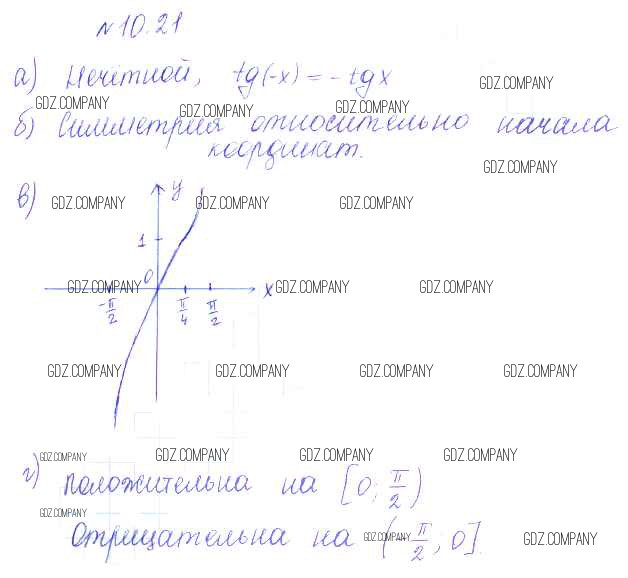 №10.21
а) Нечётной, tg(-x) = -tg x
GDZ.COMPANY GDZ.COMPANY GDZ.COMPANY GDZ.COMPANY
б) Симметрия относительно начала
координат.
GDZ.COMPANY
в) y
GDZ.COMPANY GDZ.COMPANY GDZ.COMPANY
1
0
GDZ.COMPANY x GDZ.COMPANY GDZ.COMPANY
-π/2 π/4 π/2
GDZ.COMPANY GDZ.COMPANY GDZ.COMPANY GDZ.COMPANY
GDZ.COMPANY GDZ.COMPANY GDZ.COMPANY GDZ.COMPANY
г) положительна на [0; π/2)
GDZ.COMPANY
Отрицательна на (-π/2; 0].
GDZ.COMPANY GDZ.COMPANY